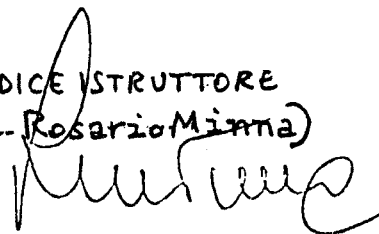 DICE ISTRUTTORE
Rosario Minna)